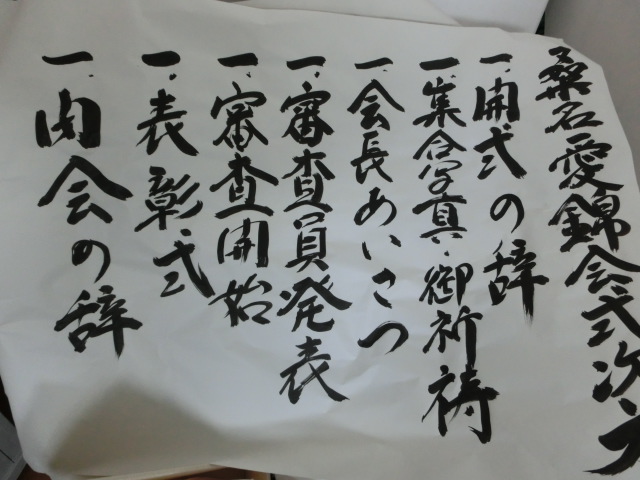 桑名愛錦会式次
一、開式の辞
一、集合写真・御祈祷
一、会長あいさつ
一、審査員発表
一、審査開始
一、表彰式
一、閉会の辞